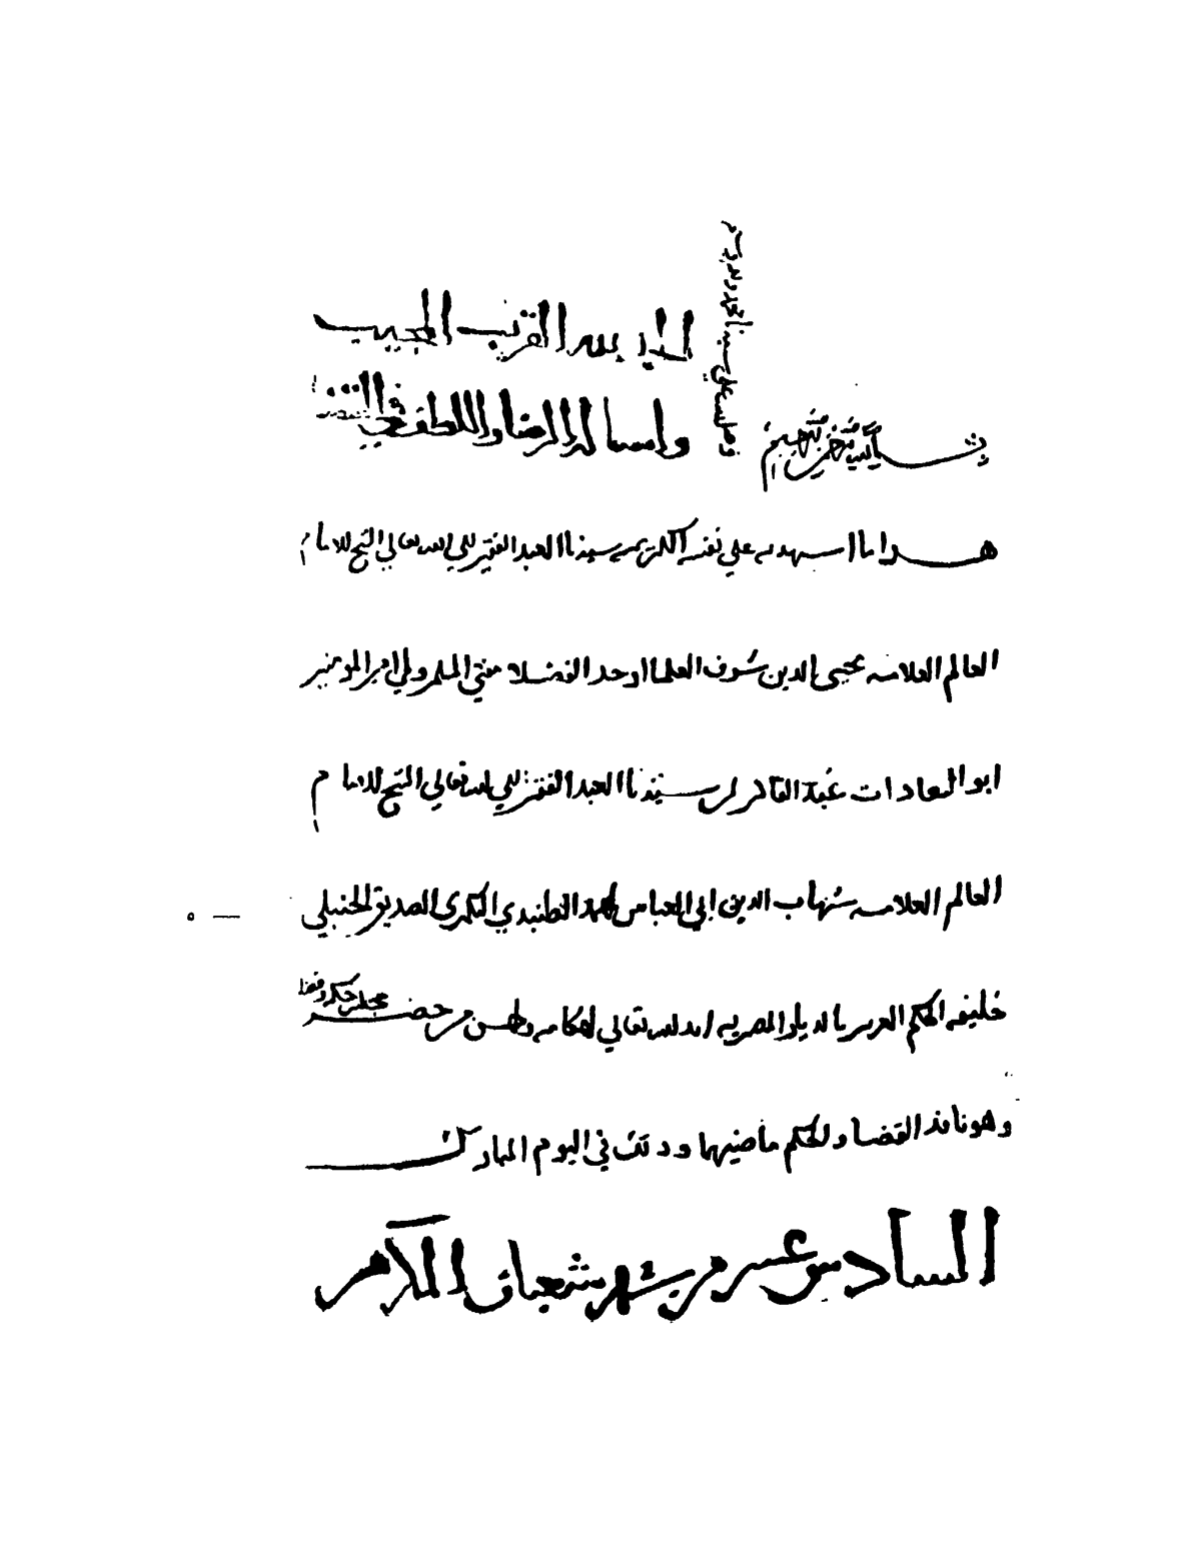 بسم الله الرحمن الرحيم
وصلى الله على سيدنا محمد وآله وسلم
بالله القريب المجيب
واسأله الرضا واللطف في
هذا ما اشهد به على نفسه الكريمه سيدنا العبد الفقير الى الله تعالى الشيخ الامام
العالم العلامه محيى الدين شرف العلما اوحد الفضلا مفتي المسلمين ولي امير المومنين
ابو السعادات عبد القادر بن سيدنا العبد الفقير الى الله تعالى الشيخ الامام
العالم العلامه شهاب الدين ابي العباس احمد الطنبدي البكري الصديقي الحنبلي
خليفه الحكم العزيز بالديار المصريه ايد الله تعالى احكامه واحسن من حضر مجلس حكمه وقضا
وهو نافذ القضا والحكم ماضيهما وذلك في اليوم المبارك
السادس عشر من شهر شعبان المكرم